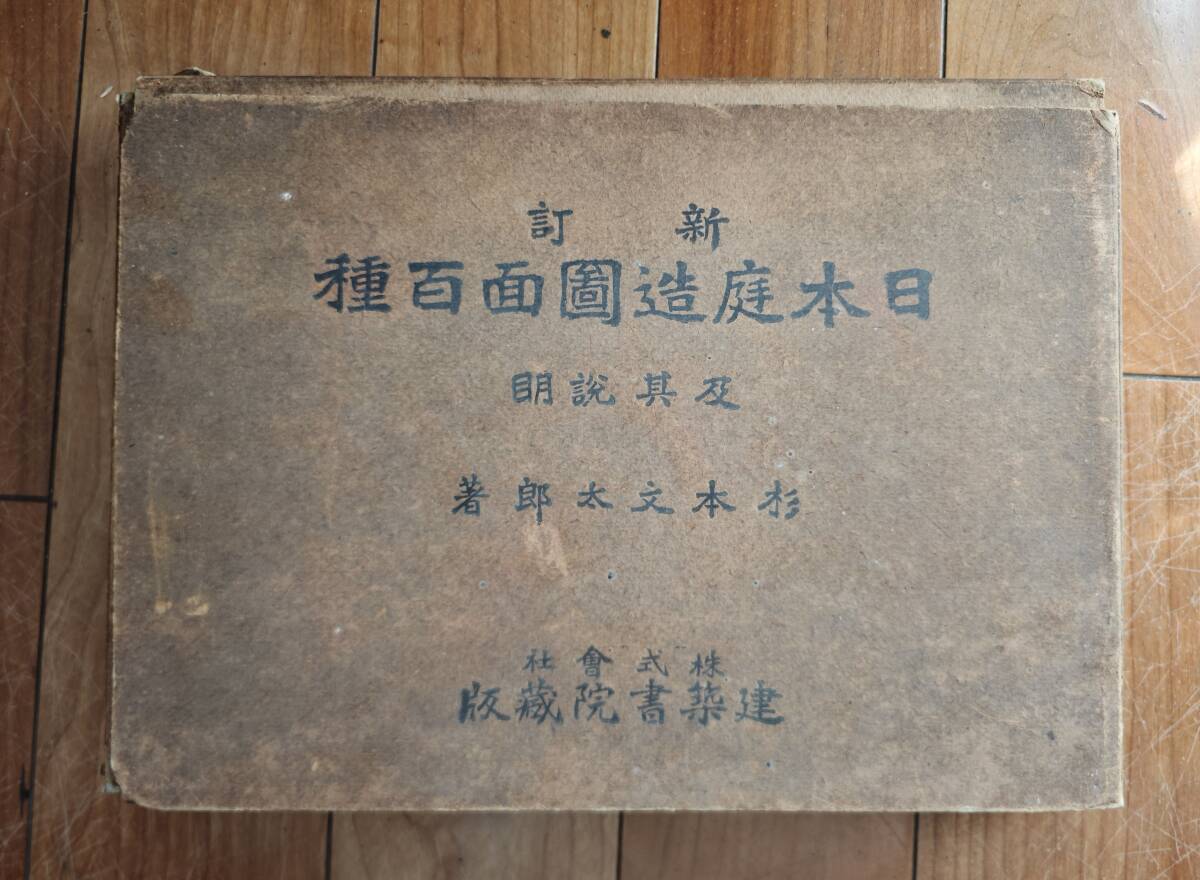 新訂
日本庭造圖面百種
及其説明
杉本文太郎著
株式會社
建築書院藏版